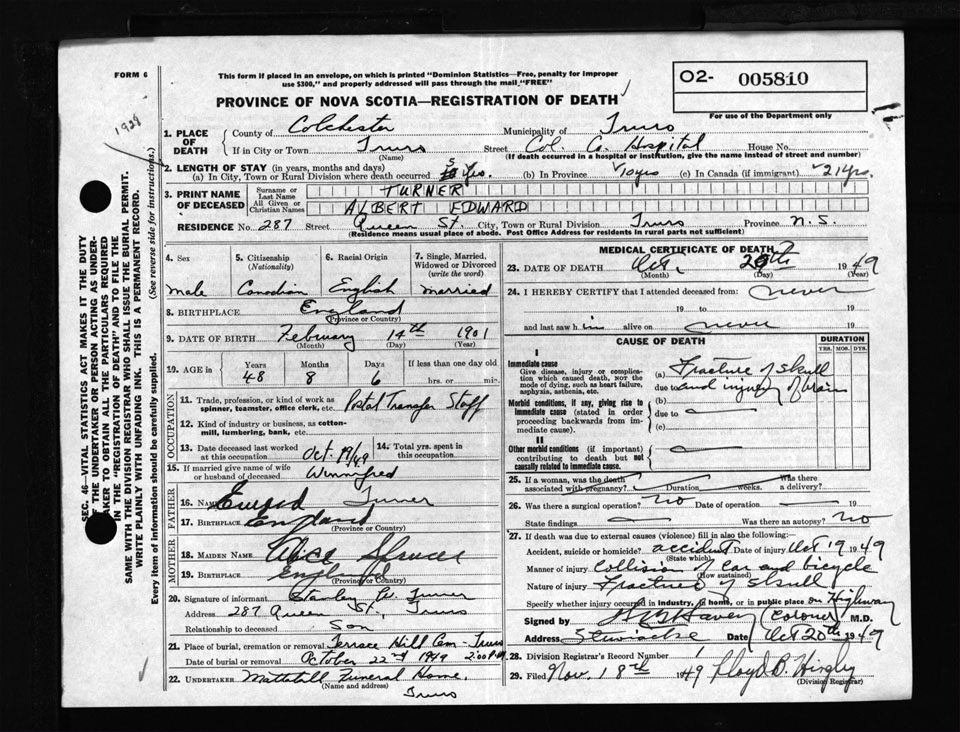 FORM 6
This form if placed in an envelope, on which is printed "Dominion Statistics—Free, penalty for improper
use $300," and properly addressed will pass through the mail "FREE"
O2- 005810
PROVINCE OF NOVA SCOTIA—REGISTRATION OF DEATH
For use of the Department only
1928
1. PLACE OF DEATH
County of Colchester Municipality of Truro
If in City or Town Truro (Name) Street Col. Co. Hospital House No.
(If death occurred in a hospital or institution, give the name instead of street and number)
2. LENGTH OF STAY (in years, months and days)
(a) In City, Town or Rural Division where death occurred 5 Yrs. (b) In Province 10 yrs (c) In Canada (if immigrant) 21 yrs.
3. PRINT NAME OF DECEASED
Surname or Last Name TURNER
All Given or Christian Names ALBERT EDWARD
RESIDENCE No. 287 Street Queen St. City, Town or Rural Division Truro Province N.S.
(Residence means usual place of abode. Post Office Address for residents in rural parts not sufficient)
4. Sex male
5. Citizenship (Nationality) Canadian
6. Racial Origin English
7. Single, Married, Widowed or Divorced (write the word) married
8. BIRTHPLACE England (Province or Country)
9. DATE OF BIRTH February (Month) 14th (Day) 1901 (Year)
10. AGE in Years 48 Months 8 Days 6 If less than one day old hrs. or min.
OCCUPATION
11. Trade, profession, or kind of work as spinner, teamster, office clerk, etc. Postal Transfer Staff
12. Kind of industry or business, as cotton-mill, lumbering, bank, etc.
13. Date deceased last worked at this occupation Oct. 19/49
14. Total yrs. spent in this occupation
15. If married give name of wife or husband of deceased Winnifred
FATHER
16. NAME Turner
17. BIRTHPLACE England (Province or Country)
MOTHER
18. MAIDEN NAME Alice
19. BIRTHPLACE England (Province or Country)
20. Signature of informant Stanley W. Turner
Address 287 Queen St. Truro
Relationship to deceased Son
21. Place of burial, cremation or removal Terrace Hill Cem - Truro
Date of burial or removal October 22nd 1949 2:00 P.M.
22. UNDERTAKER Mattatall Funeral Home.
(Name and address) Truro
MEDICAL CERTIFICATE OF DEATH
23. DATE OF DEATH Oct. (Month) 20th (Day) 1949 (Year)
24. I HEREBY CERTIFY that I attended deceased from: never
19 to 19
and last saw him alive on never 19
CAUSE OF DEATH
DURATION
YRS. MOS. DYS.
I
Immediate cause
Give disease, injury or complication which caused death, nor the mode of dying, such as heart failure, asphyxia, asthenia, etc.
(a) Fracture of skull
due to and injury of brain
Morbid conditions, if any, giving rise to immediate cause (stated in order proceeding backwards from immediate cause).
(b)
due to
(c)
II
Other morbid conditions (if important) contributing to death but not causally related to immediate cause.
25. If a woman, was the death associated with pregnancy? Duration weeks. Was there a delivery?
26. Was there a surgical operation? no Date of operation 19
State findings Was there an autopsy? no
27. If death was due to external causes (violence) fill in also the following:
Accident, suicide or homicide? accident (State which) Date of injury Oct 19 1949
Manner of injury Collision of car and bicycle (How sustained)
Nature of injury Fracture of skull
Specify whether injury occurred in industry, in home, or in public place on Highway
Signed by (Coroner) M.D.
Address Stewiacke Date Oct 20th 1949
28. Division Registrar's Record Number 1
29. Filed Nov. 18th 1949 Lloyd B. (Division Registrar)
SEC. 46—VITAL STATISTICS ACT MAKES IT THE DUTY
OF THE UNDERTAKER OR PERSON ACTING AS UNDER-
TAKER TO OBTAIN ALL THE PARTICULARS REQUIRED
IN THE "REGISTRATION OF DEATH" AND TO FILE THE
SAME WITH THE DIVISION REGISTRAR WHO SHALL ISSUE THE BURIAL PERMIT.
WRITE PLAINLY WITH UNFADING INK. THIS IS A PERMANENT RECORD.
Every item of information should be carefully supplied. (See reverse side for instructions.)